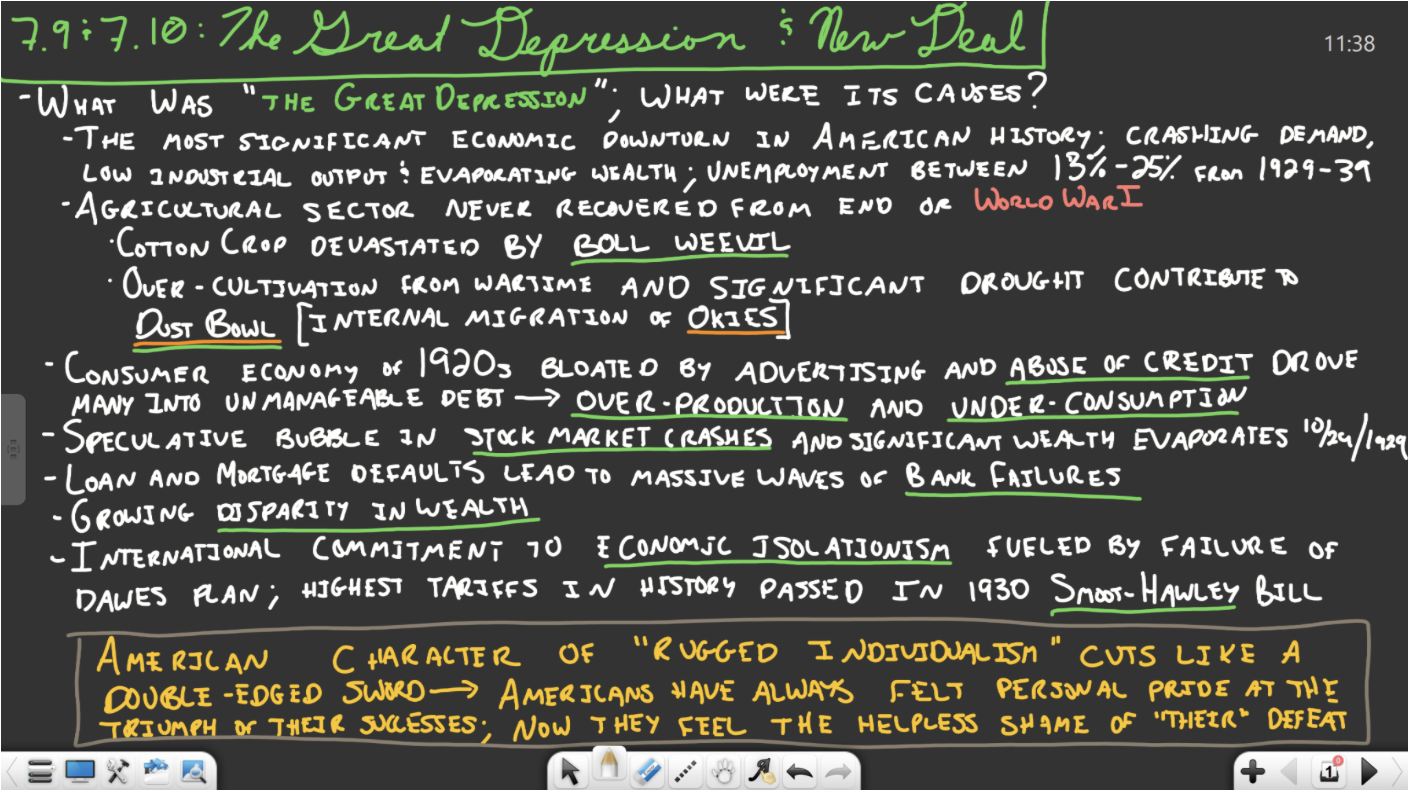 7.9 & 7.10: The Great Depression & New Deal
11:38
- WHAT WAS "THE GREAT DEPRESSION"; WHAT WERE ITS CAUSES?
- THE MOST SIGNIFICANT ECONOMIC DOWNTURN IN AMERICAN HISTORY; CRASHING DEMAND,
LOW INDUSTRIAL OUTPUT & EVAPORATING WEALTH; UNEMPLOYMENT BETWEEN 13%-25% FROM 1929-39
- AGRICULTURAL SECTOR NEVER RECOVERED FROM END OF WORLD WAR I
· COTTON CROP DEVASTATED BY BOLL WEEVIL
· OVER-CULTIVATION FROM WARTIME AND SIGNIFICANT DROUGHT CONTRIBUTE TO
DUST BOWL [INTERNAL MIGRATION OF OKIES]
- CONSUMER ECONOMY OF 1920s BLOATED BY ADVERTISING AND ABUSE OF CREDIT DROVE
MANY INTO UNMANAGEABLE DEBT → OVER-PRODUCTION AND UNDER-CONSUMPTION
- SPECULATIVE BUBBLE IN STOCK MARKET CRASHES AND SIGNIFICANT WEALTH EVAPORATES 10/29/1929
- LOAN AND MORTGAGE DEFAULTS LEAD TO MASSIVE WAVES OF BANK FAILURES
- GROWING DISPARITY IN WEALTH
- INTERNATIONAL COMMITMENT TO ECONOMIC ISOLATIONISM FUELED BY FAILURE OF
DAWES PLAN; HIGHEST TARIFFS IN HISTORY PASSED IN 1930 SMOOT-HAWLEY BILL
AMERICAN CHARACTER OF "RUGGED INDIVIDUALISM" CUTS LIKE A
DOUBLE-EDGED SWORD → AMERICANS HAVE ALWAYS FELT PERSONAL PRIDE AT THE
TRIUMPH OF THEIR SUCCESSES; NOW THEY FEEL THE HELPLESS SHAME OF "THEIR" DEFEAT
1
0